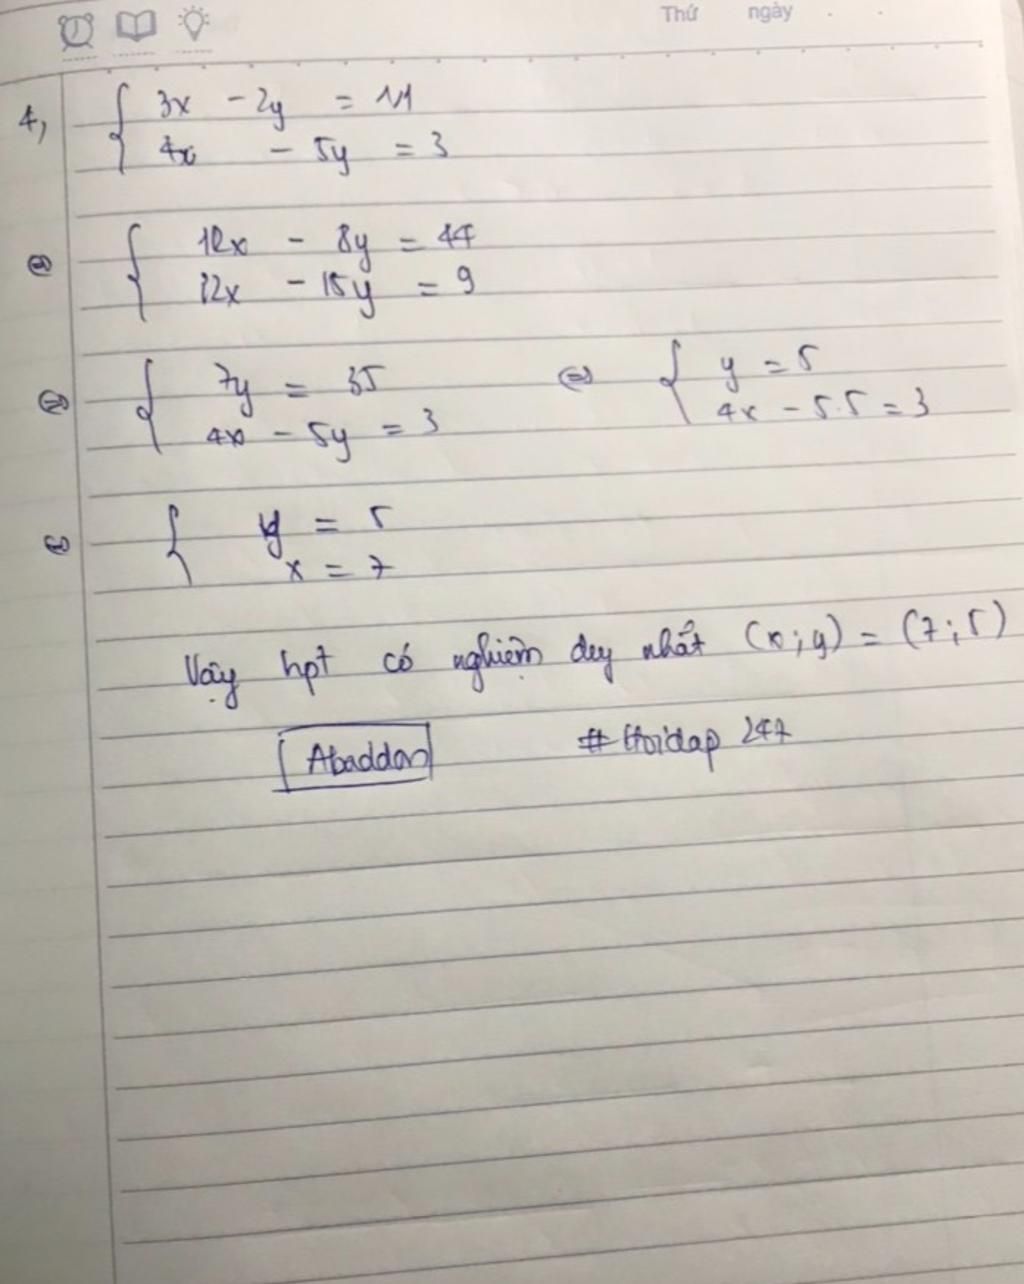 Thứ ngày
4, { 3x - 2y = 11
4x - 5y = 3
⇔ { 12x - 8y = 44
12x - 15y = 9
⇔ { 7y = 35 ⇔ { y = 5
4x - 5y = 3 4x - 5.5 = 3
⇔ { y = 5
x = 7
Vậy hpt có nghiệm duy nhất (x;y) = (7;5)
Abaddon #Hoidap 247